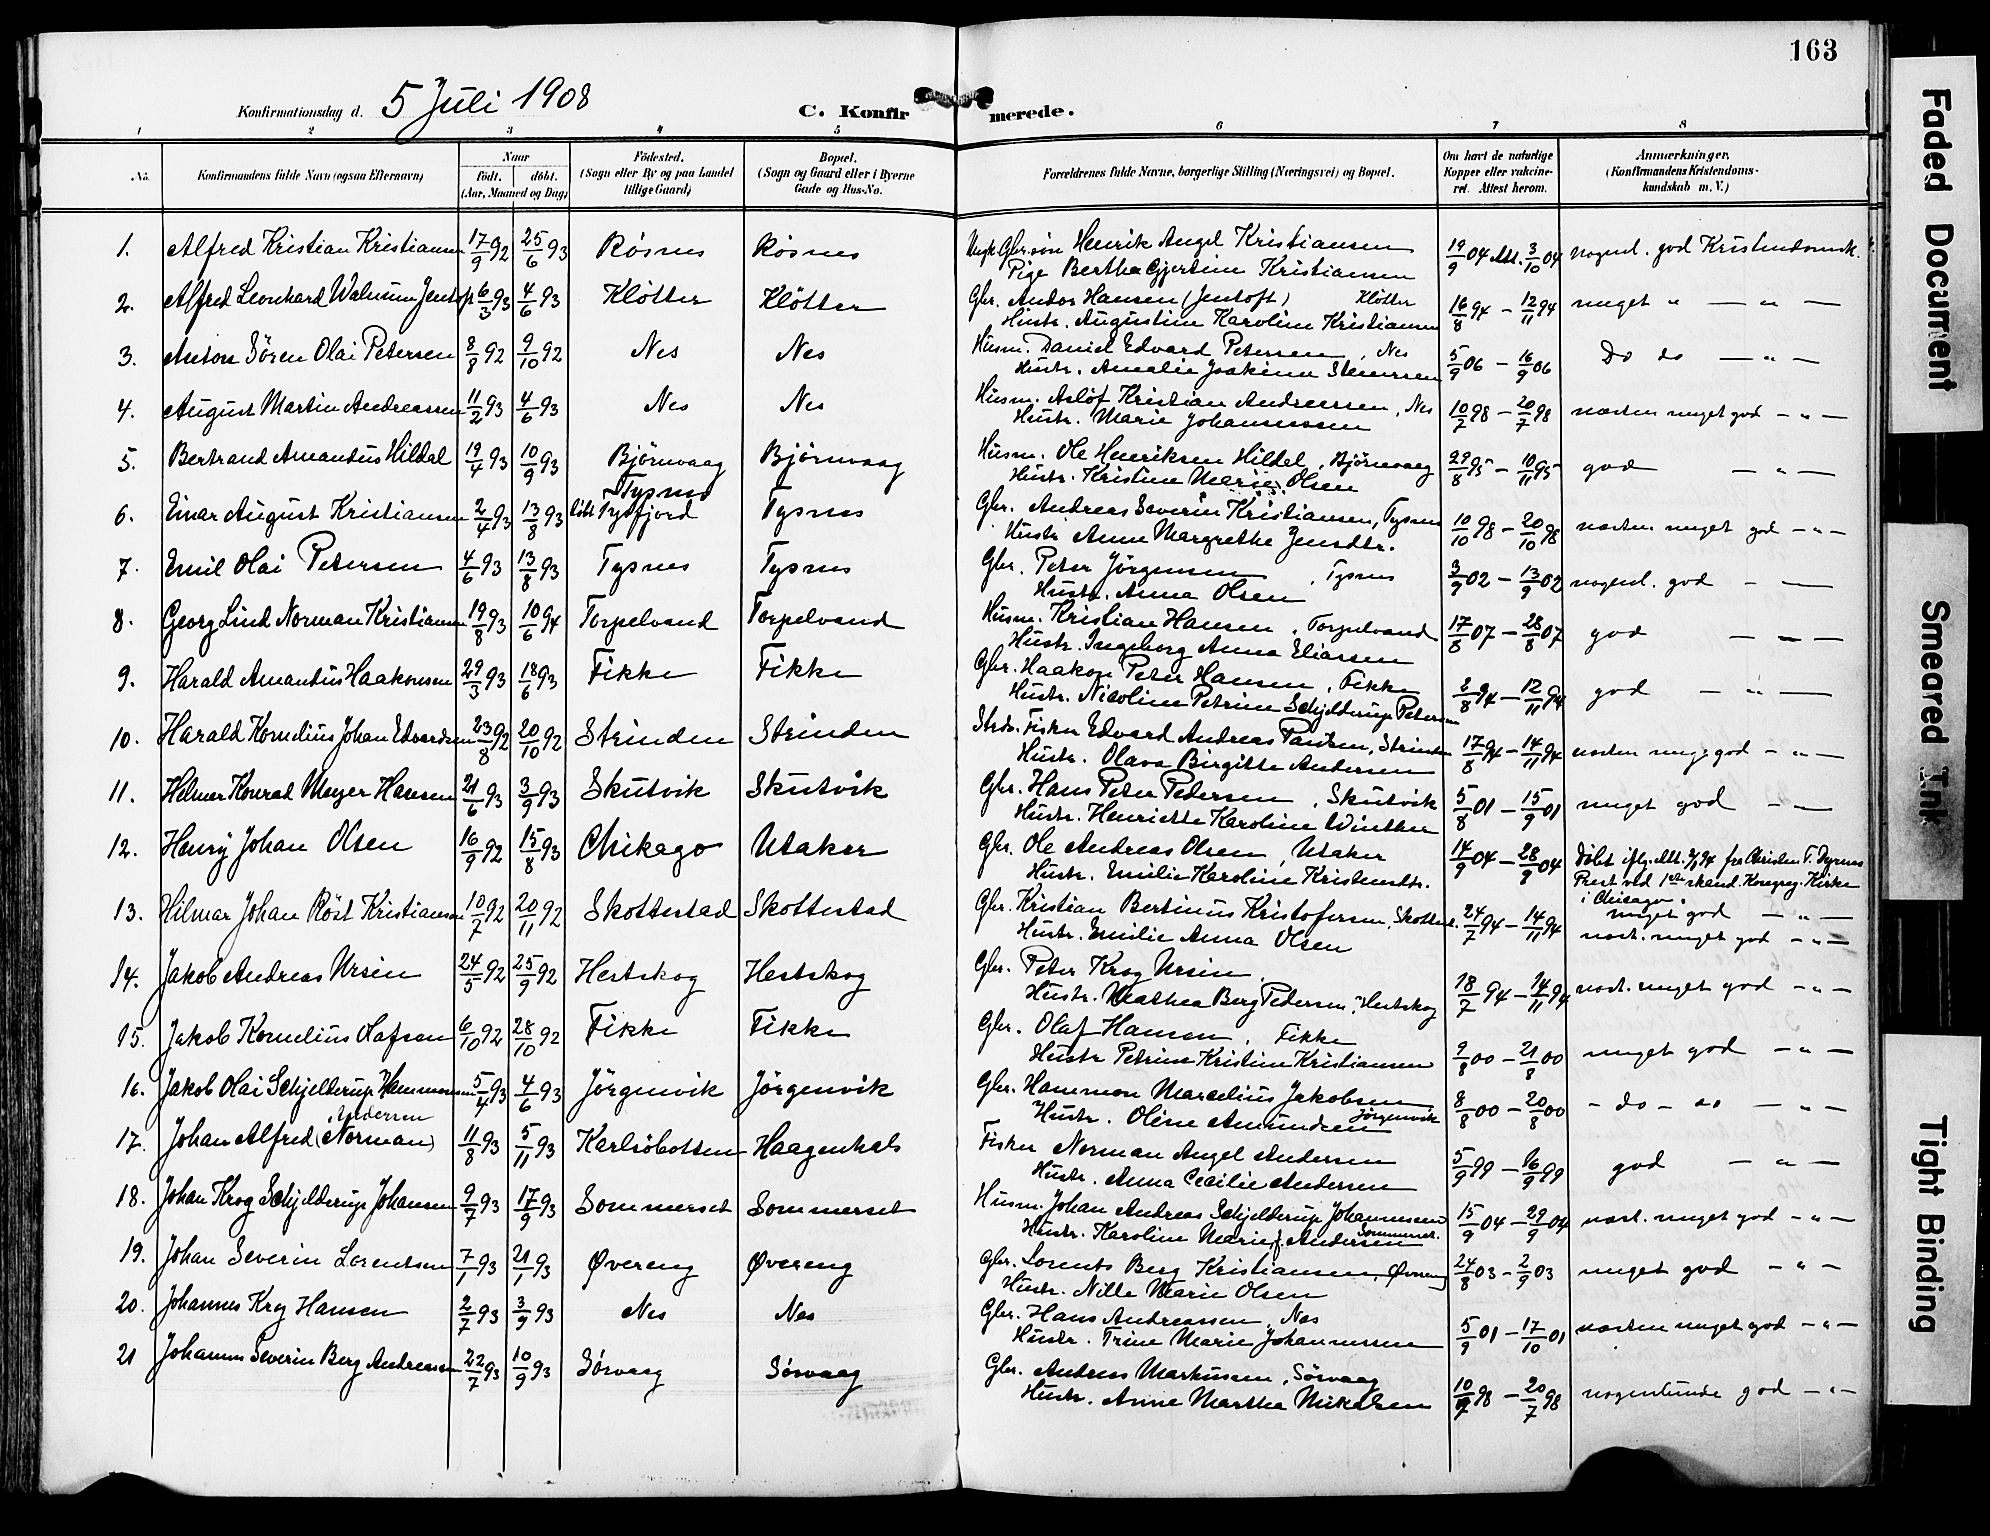 163
Konfirmationsdag d. 5 Juli 1908
C. Konfirmerede.
1 2 3 4 5 6 7 8
No. Konfirmandens fulde Navn (ogsaa Efternavn)
Naar født. døbt. (Aar, Maaned og Dag)
Fødested. (Sogn eller By og paa Landet tillige Gaard)
Bopæl. (Sogn og Gaard eller i Byerne Gade og Hus-No.
Forældrenes fulde Navne, borgerlige Stilling (Næringsvei) og Bopæl.
Om havt de naturlige Kopper eller vakcineret. Attest herom.
Anmærkninger. (Konfirmandens Kristendomskundskab m. V.)
1. Alfred Kristian Kristiansen 17/9 92 25/6 93 Røsnes Røsnes Ungk. Gbr.søn Henrik Angel Kristiansen 19/9 04 Att. 3/10 04 nogenl. god Kristendomsk.
Pige Bertha Gjertine Kristiansen
2. Alfred Leonhard Walnum Jentoft 6/3 93 4/6 93 Kløtter Kløtter Gbr. Andor Hansen (Jentoft) Kløtter 16/8 94 – 12/11 94 meget " — " —
Hustr. Augustine Karoline Kristiansen
3. Anton Søren Olai Petersen 8/8 92 9/10 92 Nes Nes Husm. Daniel Edvard Petersen, Nes 5/9 06 – 16/9 06 Do do — " —
Hustr. Amalie Joakime
4. August Martin Andreassen 11/2 93 4/6 93 Nes Nes Husm. Asløf Kristian Andreassen, Nes 10/7 98 – 20/7 98 næsten meget god – " —
Hustr. Marie Johannessen
5. Bertrand Amandus Hildal 19/4 93 10/9 93 Bjørnvaag Bjørnvaag Husm. Ole Henriksen Hildal, Bjørnvaag 29/8 95 – 10/11 95 god — " —
Hustr. Kristine Marie Olsen
Tysnes
6. Einar August Kristiansen 2/4 93 13/8 93 døbt Tysfjord Tysnes Gbr. Andreas Severin Kristiansen, Tysnes 10/10 98 – 20/10 98 næsten meget god – " –
Hustr. Anne Margrethe Jensdtr.
7. Emil Olai Petersen 4/6 93 13/8 93 Tysnes Tysnes Gbr. Peter Jørgensen, Tysnes 3/9 02 – 13/9 02 nogenl. god – —
Hustr. Anna Olsen
8. Georg Lind Norman Kristiansen 19/8 93 10/6 94 Torpelvand Torpelvand Husm. Kristian Hansen, Torpelvand 17/8 07 – 28/8 07 god — — —
Hustr. Ingeborg Anna Eliassen
9. Harald Amandus Haakonsen 29/3 93 18/6 93 Fikke Fikke Gbr. Haakon Peter Hansen, Fikke 2/8 94 – 12/11 94 god — " —
Hustr. Nicoline Petrine Schjelderup Petersen
10. Harald Kornelius Johan Edvardsen 23/8 92 20/10 92 Strinden Strinden Strds. Fisker Edvard Andreas Paulsen, Strinden 17/8 94 – 14/11 94 næsten meget god – " —
Hustr. Olava Birgitte Andersen
11. Helmer Konrad Meyer Hansen 21/6 93 3/9 93 Skutvik Skutvik Gbr. Hans Peter Pedersen, Skutvik 5/8 01 – 15/9 01 meget god – —
Hustr. Henriette Karoline Winther
12. Henry Johan Olsen 16/9 92 15/8 93 Chikago Utaker Gbr. Ole Andreas Olsen, Utaker 14/9 04 – 28/9 04 Døbt iflg. Att. fra Christen T. Dyrnes
Hustr. Emilie Karoline Kristensdtr. Prest ved 1ste skand. Kongreg. Kirke
i Chicago.
meget god — " —
13. Hilmar Johan Røst Kristiansen 10/7 92 20/11 92 Skottestad Skottestad Gbr. Kristian Bertinus Kristofersen, Skottest. 24/7 94 – 14/11 94 næst. meget god – " –
Hustr. Emilie Anna Olsen
14. Jakob Andreas Ursin 24/5 92 25/9 92 Hestskog Hestskog Gbr. Peter Krog Ursin, 18/7 94 – 14/11 94 næst. meget god – " –
Hustr. Mathea Berg Pedersen, Hestskog
15. Jakob Kornelius Olafsen 6/10 92 28/10 92 Fikke Fikke Gbr. Olaf Hansen, Fikke 9/8 00 – 21/8 00 meget god – " –
Hustr Petrine Kristine Kristiansen
16. Jakob Olai Schjelderup Hammonsen 5/4 93 4/6 93 Jørgenvik Jørgenvik Gbr. Hammon Marcelius Jakobsen 8/8 00 – 20/8 00 – do – do — " —
Hustr. Oline Amundsen Jørgenvik
Andersen
17. Johan Alfred (Norman) 11/8 93 5/11 93 Karlsøbotten Haagenhals Fisker Norman Angel Andersen 5/9 99 – 16/9 99 god — " —
Hustr. Anna Cecilie Andersen
18. Johan Krog Schjelderup Johansen 9/7 93 17/9 93 Sommerset Sommerset Husm. Johan Andreas Schjelderup Johannessen 15/9 04 – 29/9 04 næst. meget god – " –
Hustr. Karoline Marie Andersen Sommerset.
19. Johan Severin Lorentsen 7/1 93 21/1 93 Øvereng Øvereng Gbr. Lorents Berg Kristiansen, Øvereng 24/8 03 – 2/9 03 meget god – " –
Hustr. Nille Marie Olsen
20. Johannes Krog Hansen 2/7 93 3/9 93 Nes Nes Gbr. Hans Andreassen, Nes 5/9 01 – 17/10 01 næsten meget god – " –
Hustr. Trine Marie Johannessen
21 Johannes Severin Berg Andreassen 22/7 93 10/9 93 Sørvaag Sørvaag Gbr. Andreas Markussen, Sørvaag 10/7 98 – 20/7 98 nogenlunde god – " –
Hustr. Anne Martha Mikalsen
Faded Document
Smeared Ink
Tight Binding